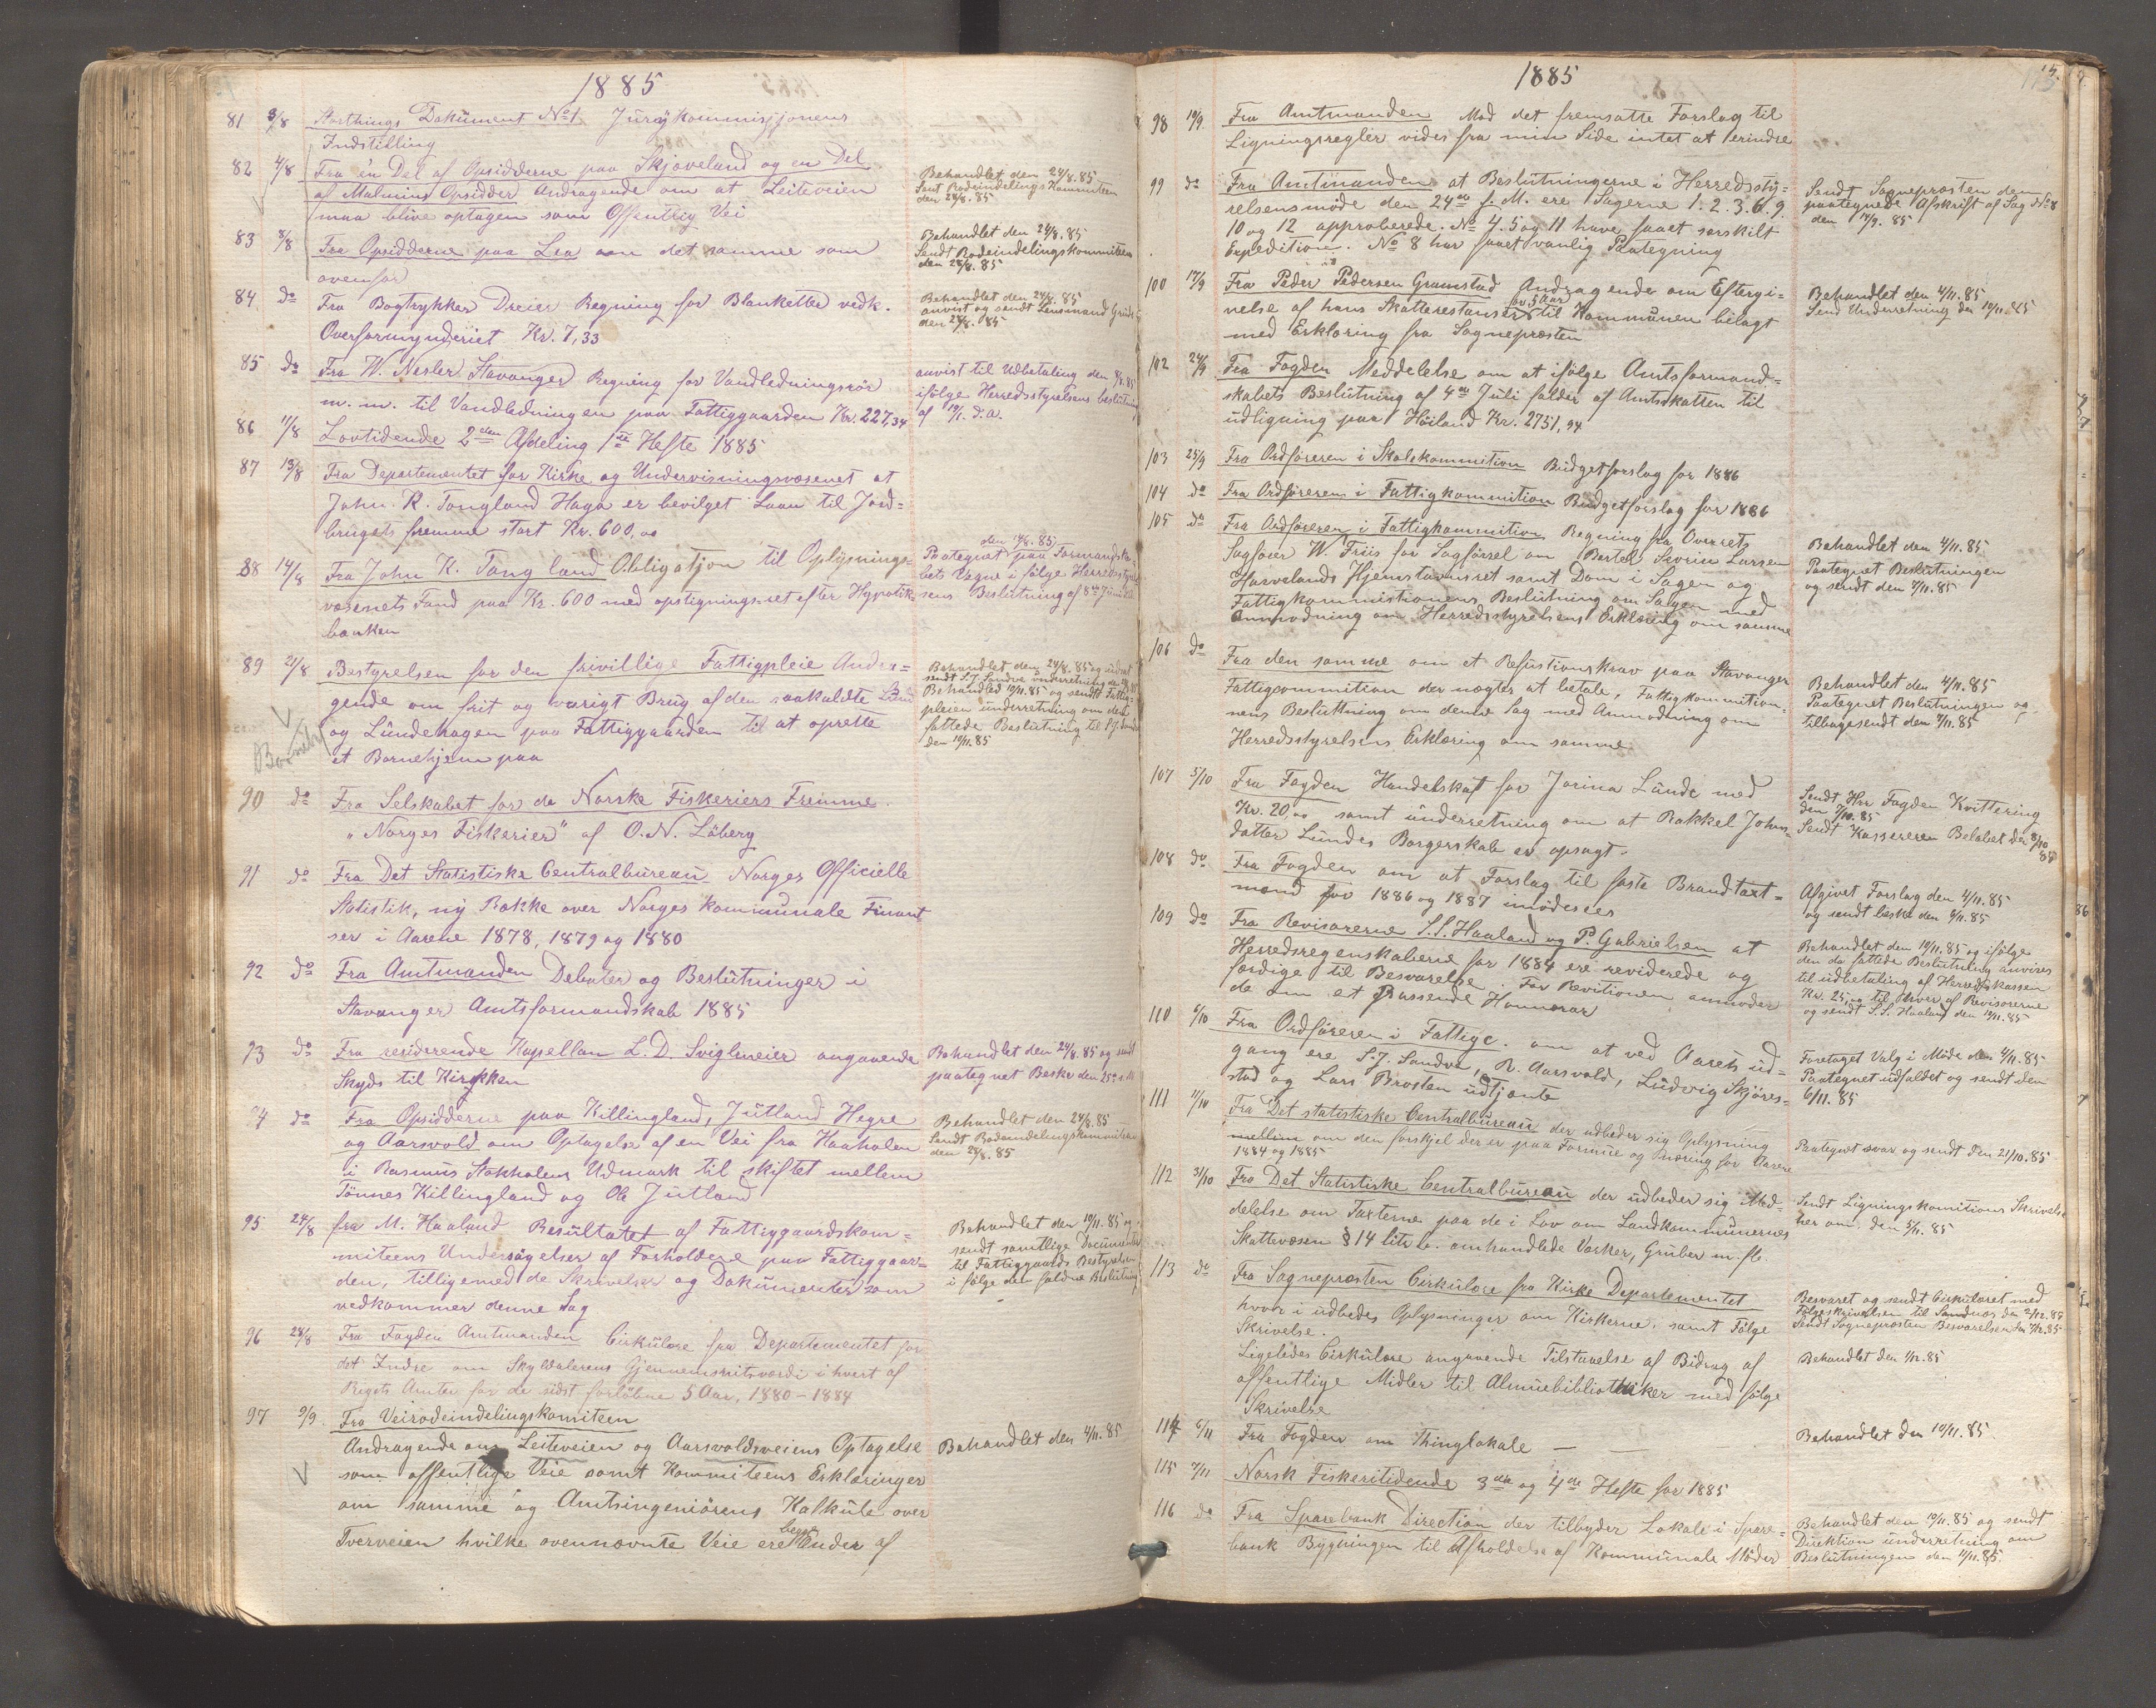 1885
81 3/8 Storthings Dokument No 1 Jurykommisjonens
Indstilling
82 4/8 Fra en Del af Opsidderne paa Skjoveland og en Del
af Malmins Opsidder Andragende om at Leiteveien
maa blive optagen som Offentlig Vei
Behandlet den 24/8.85
Samt Rodeindelings Kommiteen
den 28/8.85
83 8/8 Fra Opsidderne paa Lea om det samme som
ovenfor
Behandlet den 24/8.85
Sendt Rodeindelingskommiteen
den 28/8.85
84 do Fra Bogtrykker Dreier Regning for Blanketter vedk.
Overformynderiet Kr. 7,33
Behandlet den 24/8.85
anvist og sendt Lensmand
den 28/8.85
85 do Fra W. Nesler Stavanger Regning for Vandledningsrör
m.m. til Vandledningen paa Fattiggaarden Kr. 227,34
anvist til Udbetaling den
ifölge Herredsstyrelsens beslutning
af 19/1. d.a.
86 11/8 Lovtidende 2den Afdeling 1ste Hefte 1885
87 13/8 Fra Departementet for Kirke og Undervisningsvæsenet at
John K. Tangland Haga er bevilget Laan til Jord-
brugets fremme stort Kr. 600,00
88 14/8 Fra John K. Tangland Obligatjon til Oplysnings-
væsenets Fond paa Kr. 600 med opstigningsret efter Hypotek-
banken
den 14/8.85
Paategnet paa Formandska-
bets Vegne i fölge Herredsstyrel-
sens Beslutning af 8de Juni
89 21/8 Bestyrelsen for den frivillige Fattigpleie Andra-
gende om frit og varigt Brug af den saakaldte
og Lundehagen paa Fattiggaarden til at oprette
et Barnehjem paa
Behandlet den 24/8.85 og
sendt S.J. Sandve underretning den
Behandled 10/11.85 og sendt Fattig-
pleien underretning om den
fattede Beslutning til S.J. Sandve
den 10/11.85
90 do Fra Selskabet for de Norske Fiskeriers Fremme.
"Norges Fiskerier" af O.N. Löberg
91 do Fra Det Statistiske Centralbureau Norges Officielle
Statistik, ny Række over Norges kommunale Finant-
ser i Aarene 1878, 1879 og 1880
92 do Fra Amtmanden Debater og Beslutninger i
Stavanger Amtsformandskab 1885
93 do Fra residerende Kapellan L.D. Sviglmeier angaaende
Skyds til Kirkken
Behandlet den 24/8.85 og sendt
paategnet Beske den 25de
94 do Fra Opsidderne paa Killingland, Jutland Hegre
og Aarsvold om Optagelse af en Vei fra Haaholen
i Rasmus Stokholens Udmark til skiftet mellem
Tönnes Killingland og Ole Jutland
Behandlet den 24/8.85
Sendt Rodeindelingskommiteen
den 28/8.85
95 24/8 fra M. Haaland Resultatet af Fattiggaardskom-
miteens Undersögelser af Forholdene paa Fattiggaar-
den, tilligemed de Skrivelser og Dokumenter som
vedkommer denne Sag
Behandlet den 10/11.85 og
sendt samtlige Documenter
til Fattiggaards Bestyrelsen
i fölge den faldne Beslutning
96 28/8 Fra Fogden Amtmanden Cirkulære fra Departementet for
det Indre om Skyldalerens Gjennemsnitsværdi i hvert af
Rigets Amter for de sidst forløbne 5 Aar, 1880-1884
97 9/9 Fra Veirodeindelingskomiteen
Andragende om Leiteveien og Aarsvoldsveiens Optagelse
som offentlige Veie samt Kommiteens Erklæringer
om samme og Amtsingeniörens Kalkule over
Tverveien hvilke ovennævnte Veie ere under af
Behandlet den 4/11.85
1885
98 10/9 Fra Amtmanden Mod det fremsatte Forslag til
Ligningsregler vides fra min Side intet at erindre
99 do Fra Amtmanden at Beslutningerne i Herredssty-
relsensmöde den 24de f.M. ere Sagerne 1.2.3.6.9.
10 og 12 approberede. No 4.5 og 11 have faaet særskilt
Expedition. No 8 har faaet vanlig Paategning
Sendt Sognepræsten den
paategnede Afskrift af Sag No 8
den 14/9.85
100 17/9 Fra Peder Pedersen Gramstad Andragende om Eftergi-
velse af hans Skatterestanser for 5 Aar til Kommunen bilagt
med Erklæring fra Sognepræsten
Behandlet den 4/11.85
Send Underretning den 10/11.85
102 24/9 Fra Fogden Meddelelse om at ifölge Amtsformand-
skabets Beslutning af 4de Juli falder af Amtsskatten til
udligning paa Höiland Kr. 2751,94
103 25/9 Fra Ordföreren i Skolekommition Budgetforslag for 1886
104 do Fra Ordföreren i Fattigkommition Budgetforslag for 1886
105 do Fra Ordföreren i Fattigkommition Regning fra Overrets
Sagförer W. Friis for Sagförsel om Bertel Severin Larsen
Hasvelands Hjemstavnsret samt Dom i Sagen og
Fattigkommistionens Beslutning om Sagen med
Anmodning om Herredsstyrelsens Erklæring om samme
Behandlet den 4/11.85
Paategnet Beslutningen
og sendt den 7/11.85
106 do Fra den samme om et Refustionskrav paa Stavanger
Fattigcommition der nægtes at betale, Fattigkommition-
nens Besluttning om denne Sag med Anmodning om
Herredsstyrelsens Erklæring om samme
Behandlet den 4/11.85
Paategnet Beslutningen og
tilbagesendt den 7/11.85
107 5/10 Fra Fogden Handelskat for Jorina Lunde med
Kr. 20,00 samt underretning om at Rakkel Johns-
datter Lundes Borgerskab er opsagt.
Sendt Hrr Fogden Kvittering
den 7/10.85
Sendt Kassereren Belöbet den 8/10
85
108 do Fra Fogden om at Forslag til faste Brandtaxt-
mænd for 1886 og 1887 imödesees
Afgivet Forslag den 4/11.85
og sendt beske den 6/11.85
109 do Fra Revisorerne S.S. Haaland og P. Gabrielsen at
Herredsregenskaberne for 1884 ere reviderede og
færdige til Besvarelse. For Revitionen anmoder
de om et Passende Honnorar
Behandlet den 10/11.85 og ifölge
den da fattede Beslutning anvises
til udbetaling af Herredskassen
Kr. 25,00 til hver af Revisorerne
og sendt S.S. Haaland den 10/11.85
110 6/10 Fra Ordföreren i Fattigc. om at ved Aarets ud-
gang ere S.J. Sandve, R. Aarsvold, Ludvig Skjöres-
stad og Lars Brosten udtjente
Foretaget Valg i Möde den 4/11.85
Paategnet udfaldet og sendt den
6/11.85
111 17/10 Fra Det statistiske Centralbureau der udbeder sig Oplysning
mellem om den forskjel der er paa Formue og næring for Aarene
1884 og 1885
Paategnet svar og sendt den 21/10.85
112 31/10 Fra Det Statistiske Centralbureau der udbeder sig Med-
delelse om Taxterne paa de i Lov om Landkommunernes
Skattevæsen § 14 litr b. omhandlede Værker, Gruber m. fl.
Sendt Ligningskomitions Skrivelse
her om. den 5/11.85
113 do Fra Sognepræsten Cirkulære fra Kirke Departementet
hvor i udbedes Oplysninger om Kirkerne. samt Fölge
Skrivelse.
Ligeledes Cirkulære angaaende Tilstaaelse af Bidrag af
offentlige Midler til Almuebibliotheker med fölge
Skrivelse
Besvaret og sendt Cirkulæret med
Fölgeskrivelsen til Sandnæs den 2/12.85
Sendt Sognepræsten Besvarelsen den 2/12.85
Behandlet den 1/12.85
114 6/11 Fra Fogden om Thinglokale
Behandlet den 10/11.85
115 7/11 Norsk Fiskeritidende 3die og 4de Hefte for 1885
116 do Fra Sparebank Direction der tilbyder Lokale i Spare-
bank Bygningen til Afholdelse af Kommunale Möder
Behandlet den 10/11.85 og sendt
Direktion underretning om
Beslutningen den 11/11.85